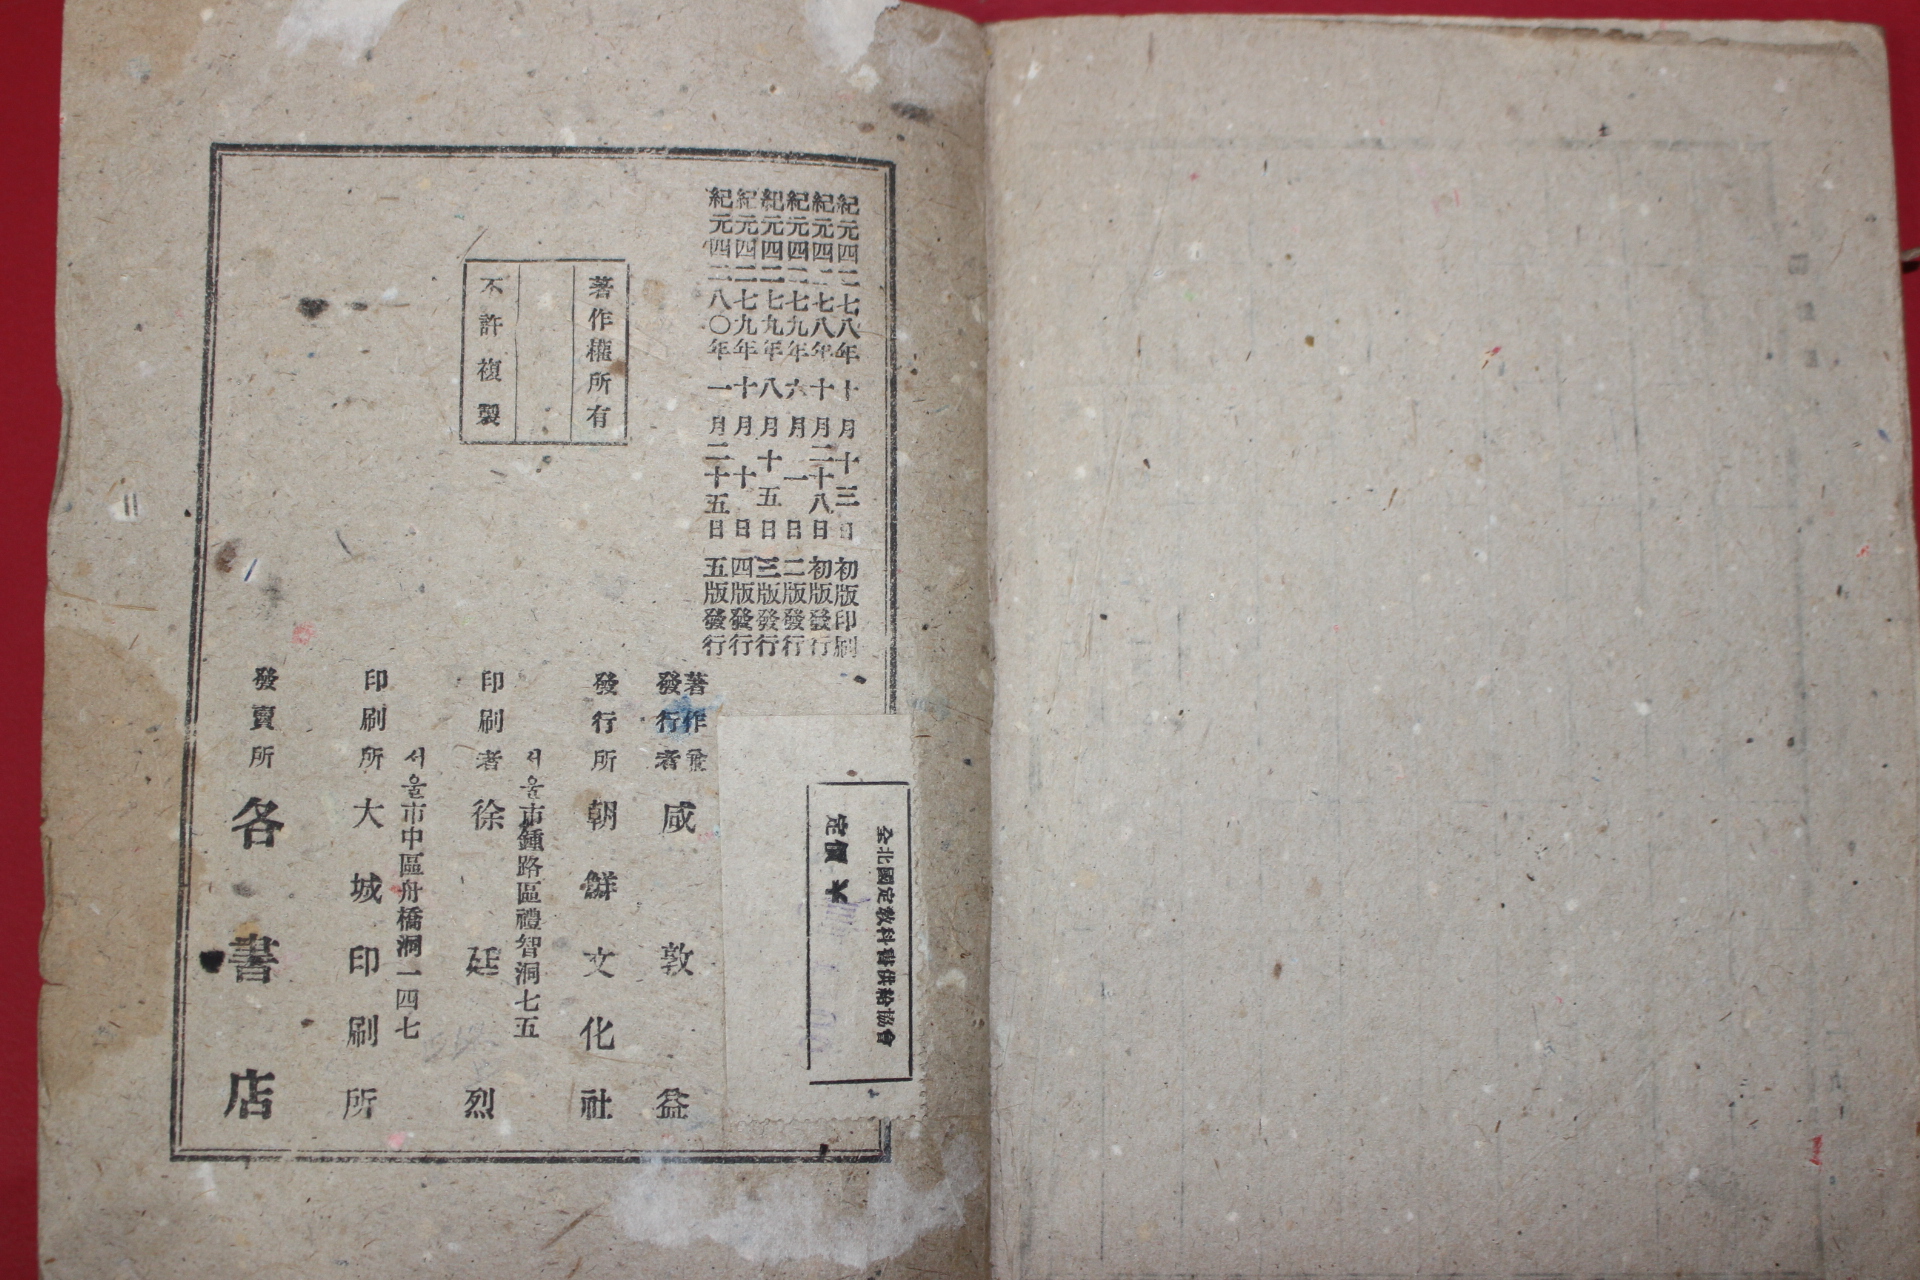 紀元四二七八年十月十三日初版印刷
紀元四二七八年十月二十八日初版發行
紀元四二七九年六月一日二版發行
紀元四二七九年八月十五日三版發行
紀元四二七九年十月十日四版發行
紀元四二八〇年一月二十五日五版發行
著作權所有
不許複製
著作兼
發行者 咸敦益
發行所 朝鮮文化社
서울市鍾路區禮智洞七五
印刷者 徐廷烈
서울市中區舟橋洞一四七
印刷所 大城印刷所
發賣所 各書店
全北國定敎科書供給協會
定